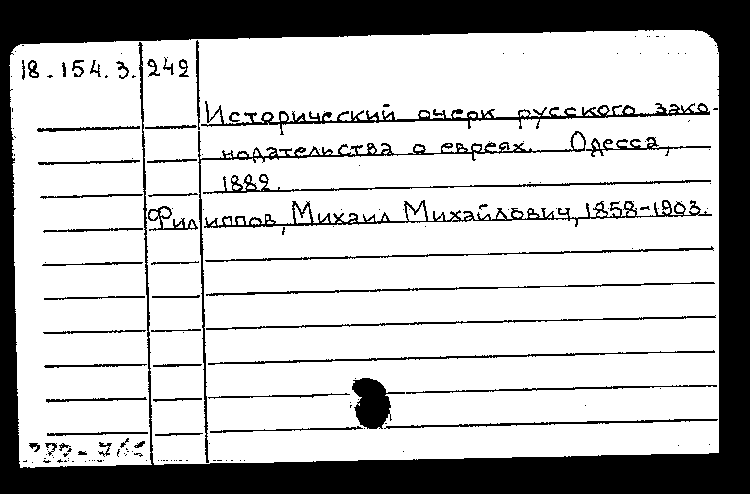 18.154.3. 242
Исторический очерк русского зако-
нодательства о евреях. Одесса,
1882.
Филиппов, Михаил Михайлович, 1858-1903.